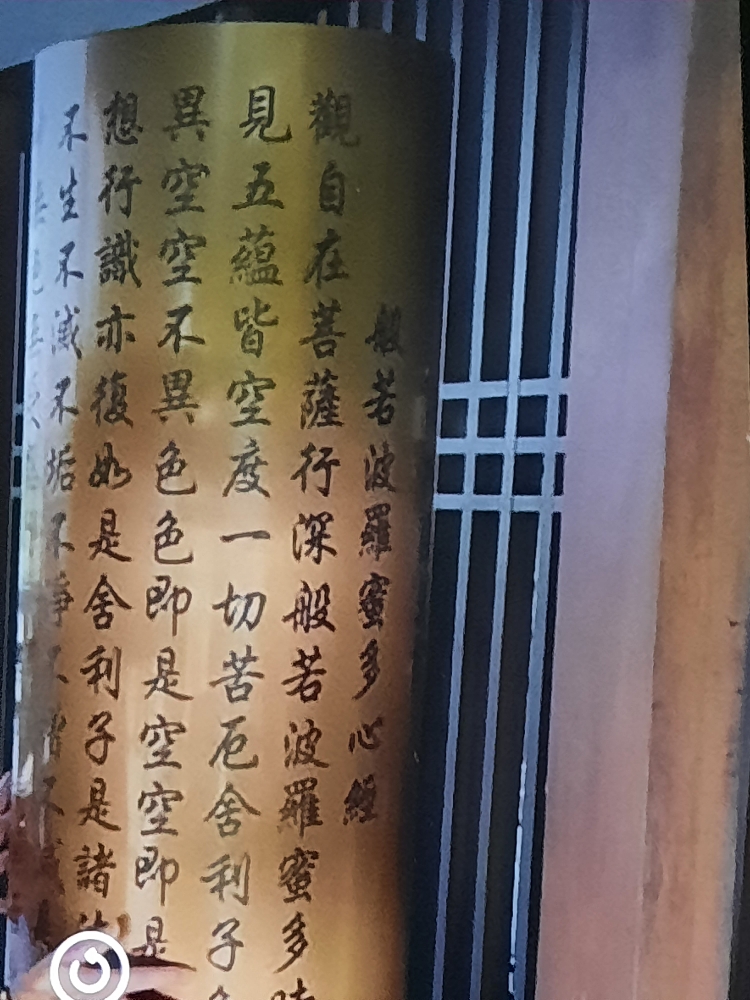 般若波羅蜜多心經
觀自在菩薩行深般若波羅蜜多時
見五蘊皆空度一切苦厄舍利子色
異空空不異色色即是空空即是
想行識亦復如是舍利子是諸法
不生不滅不垢不淨不增不減